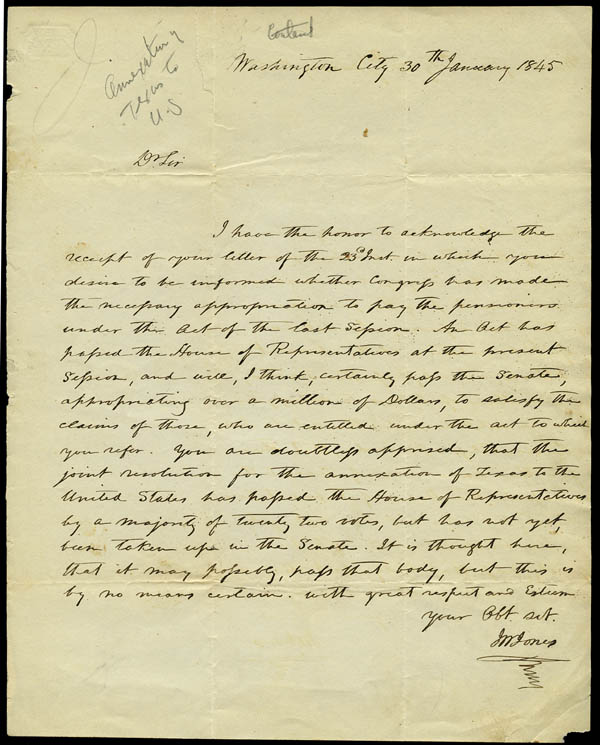 Annexation of
Texas to
U.S
Washington City 30th January 1845
Dr Sir
I have the honor to acknowledge the
receipt of your letter of the 23d Inst. in which you
desire to be informed whether Congress has made
the necessary appropriation to pay the pensioners
under the Act of the last Session. An Act has
passed the House of Representatives at the present
Session, and will, I think, certainly pass the Senate,
appropriating over a million of Dollars, to satisfy the
claims of those, who are entitled under the act to which
you refer. You are doubtless apprised, that the
joint resolution for the annexation of Texas to the
United States has passed the House of Representatives
by a majority of twenty two votes, but has not yet,
been taken up in the Senate. It is thought here,
that it may possibly, pass that body, but this is
by no means certain. with great respect and Esteem
your Obt. svt.
JW Jones